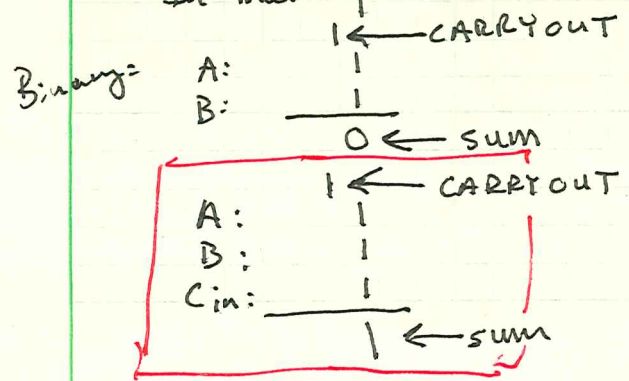 1 ← CARRYOUT
Binary:
A: 1
B: 1
0 ← SUM
1 ← CARRYOUT
A: 1
B: 1
Cin: 1
1 ← SUM